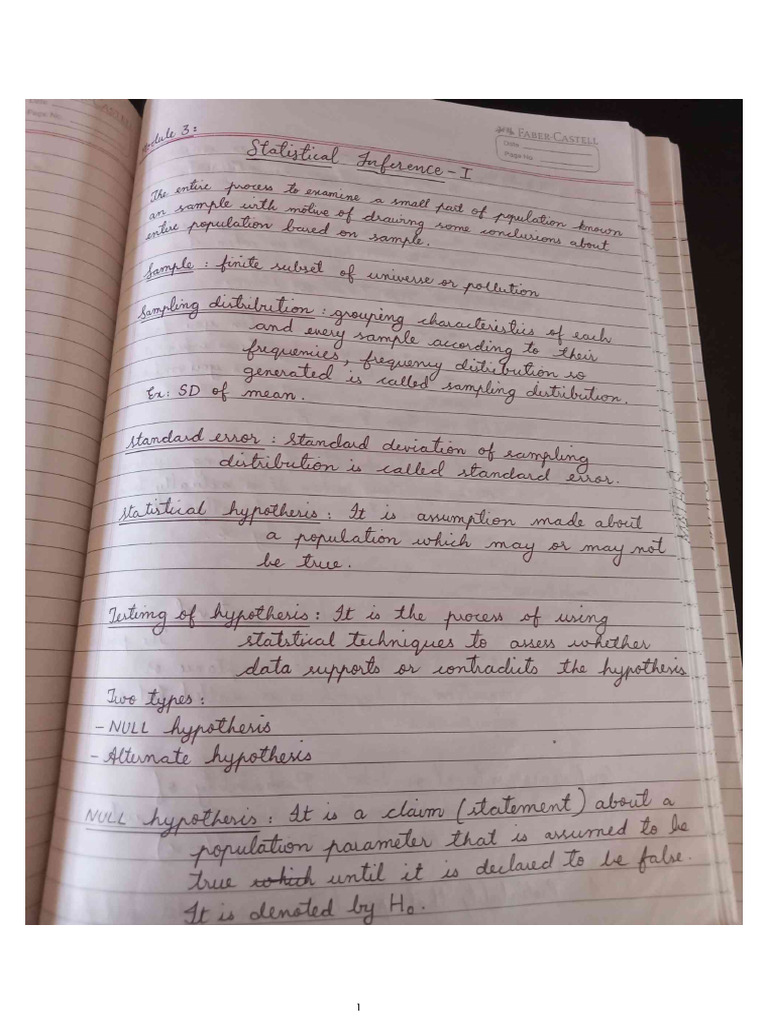 Date
Page No.
CASTELL
FABER-CASTELL
Date
Page No
Module 3:
Statistical Inference - I
The entire process to examine a small part of population known
an sample with motive of drawing some conclusions about
entire population based on sample.
Sample : finite subset of universe or pollution
Sampling distribution : grouping characteristics of each
and every sample according to their
frequencies, frequency distribution so
generated is called sampling distribution.
Ex: SD of mean.
Standard error : Standard deviation of sampling
distribution is called standard error.
Statistical hypothesis : It is assumption made about
a population which may or may not
be true.
Testing of hypothesis : It is the process of using
statstical techniques to assess whether
data supports or contradicts the hypothesis
Two types :
- NULL hypothesis
- Alternate hypothesis
NULL hypothesis : It is a claim (statement) about a
population parameter that is assumed to be
true which until it is declared to be false.
It is denoted by H₀.
1